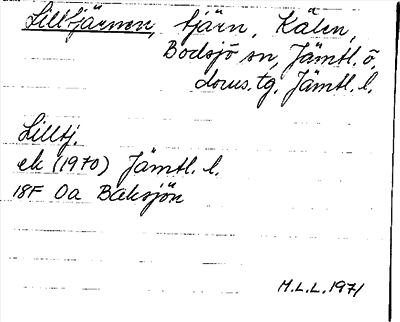 Lilltjärnen, tjärn, Kälen,
Bodsjö sn, Jämtl. ö.
doms. tg, Jämtl. l.
Lilltj.
ek (1970) Jämtl. l.
18F 0a Baksjön
M.L.L. 1971